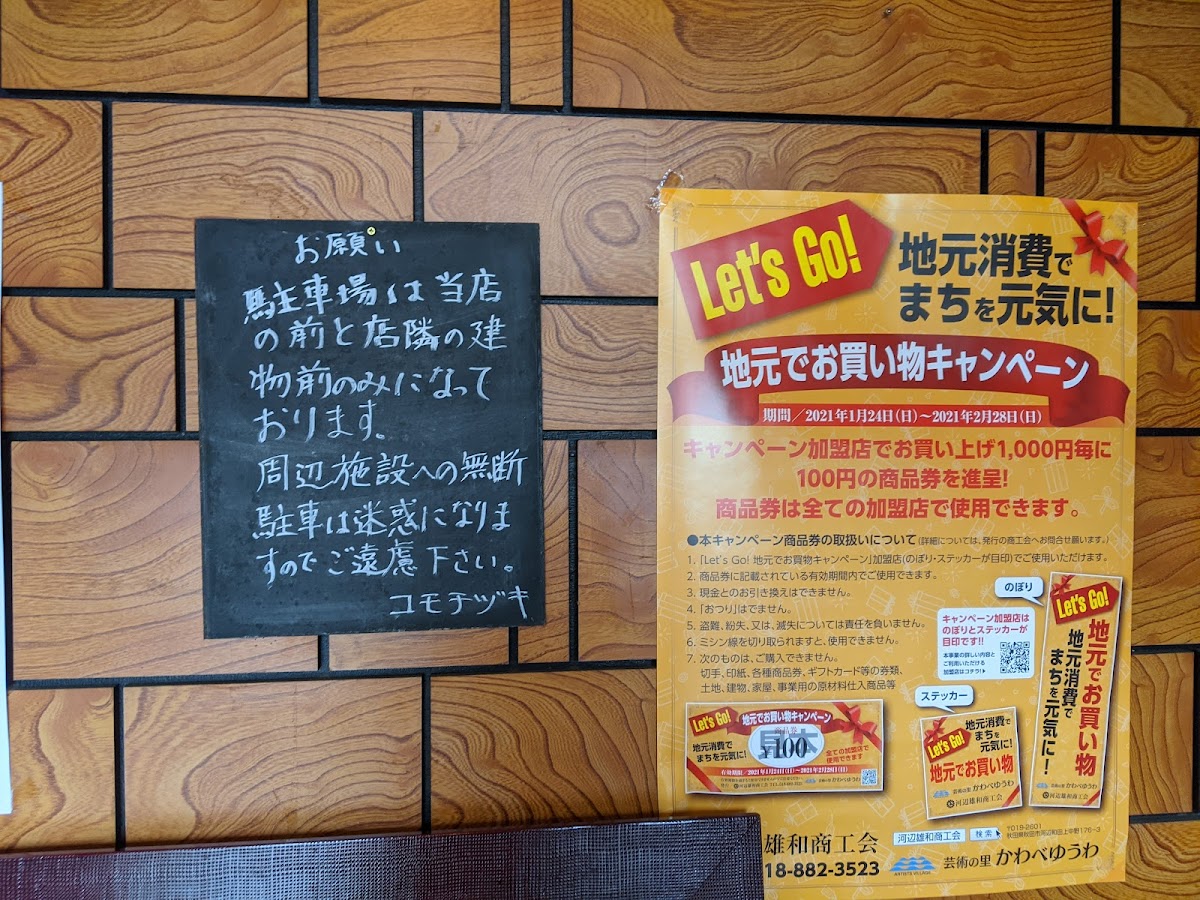 お願い
駐車場は当店
の前と店隣の建
物前のみになって
おります。
周辺施設への無断
駐車は迷惑になりま
すのでご遠慮下さい。
コモチヅキ
Let's Go!
地元消費で
まちを元気に!
地元でお買い物キャンペーン
期間/2021年1月24日(日)〜2021年2月28日(日)
キャンペーン加盟店でお買い上げ1,000円毎に
100円の商品券を進呈!
商品券は全ての加盟店で使用できます。
●本キャンペーン商品券の取扱いについて(詳細については、発行の商工会へお問合せ願います。)
1.「Let's Go! 地元でお買物キャンペーン」加盟店(のぼり・ステッカーが目印)でご使用いただけます。
2. 商品券に記載されている有効期間内でご使用できます。
3. 現金とのお引き換えはできません。
4.「おつり」はでません。
5. 盗難、紛失、又は、滅失については責任を負いません。
6. ミシン線を切り取られますと、使用できません。
7. 次のものは、ご購入できません。
切手、印紙、各種商品券、ギフトカード等の券類、
土地、建物、家屋、事業用の原材料仕入商品等
のぼり
キャンペーン加盟店は
のぼりとステッカーが
目印です!!
本事業の詳しい内容と
ご利用いただける
加盟店はコチラ!
Let's Go!
地元でお買い物
地元消費で
まちを元気に!
芸術の里 かわべゆうわ
河辺雄和商工会
ステッカー
地元消費で
まちを
元気に!
Let's Go!
地元でお買い物
芸術の里 かわべゆうわ
河辺雄和商工会
Let's Go!
地元でお買い物キャンペーン
地元消費で
まちを元気に!
¥100
全ての加盟店で
使用できます
有効期間/2021年1月24日(日)〜2021年2月28日(日)
芸術の里 かわべゆうわ
雄和商工会
18-882-3523
河辺雄和商工会 検索
〒018-2601
秋田県秋田市河辺和田字上中野176-3
ARTISTS VILLAGE
芸術の里 かわべゆうわ